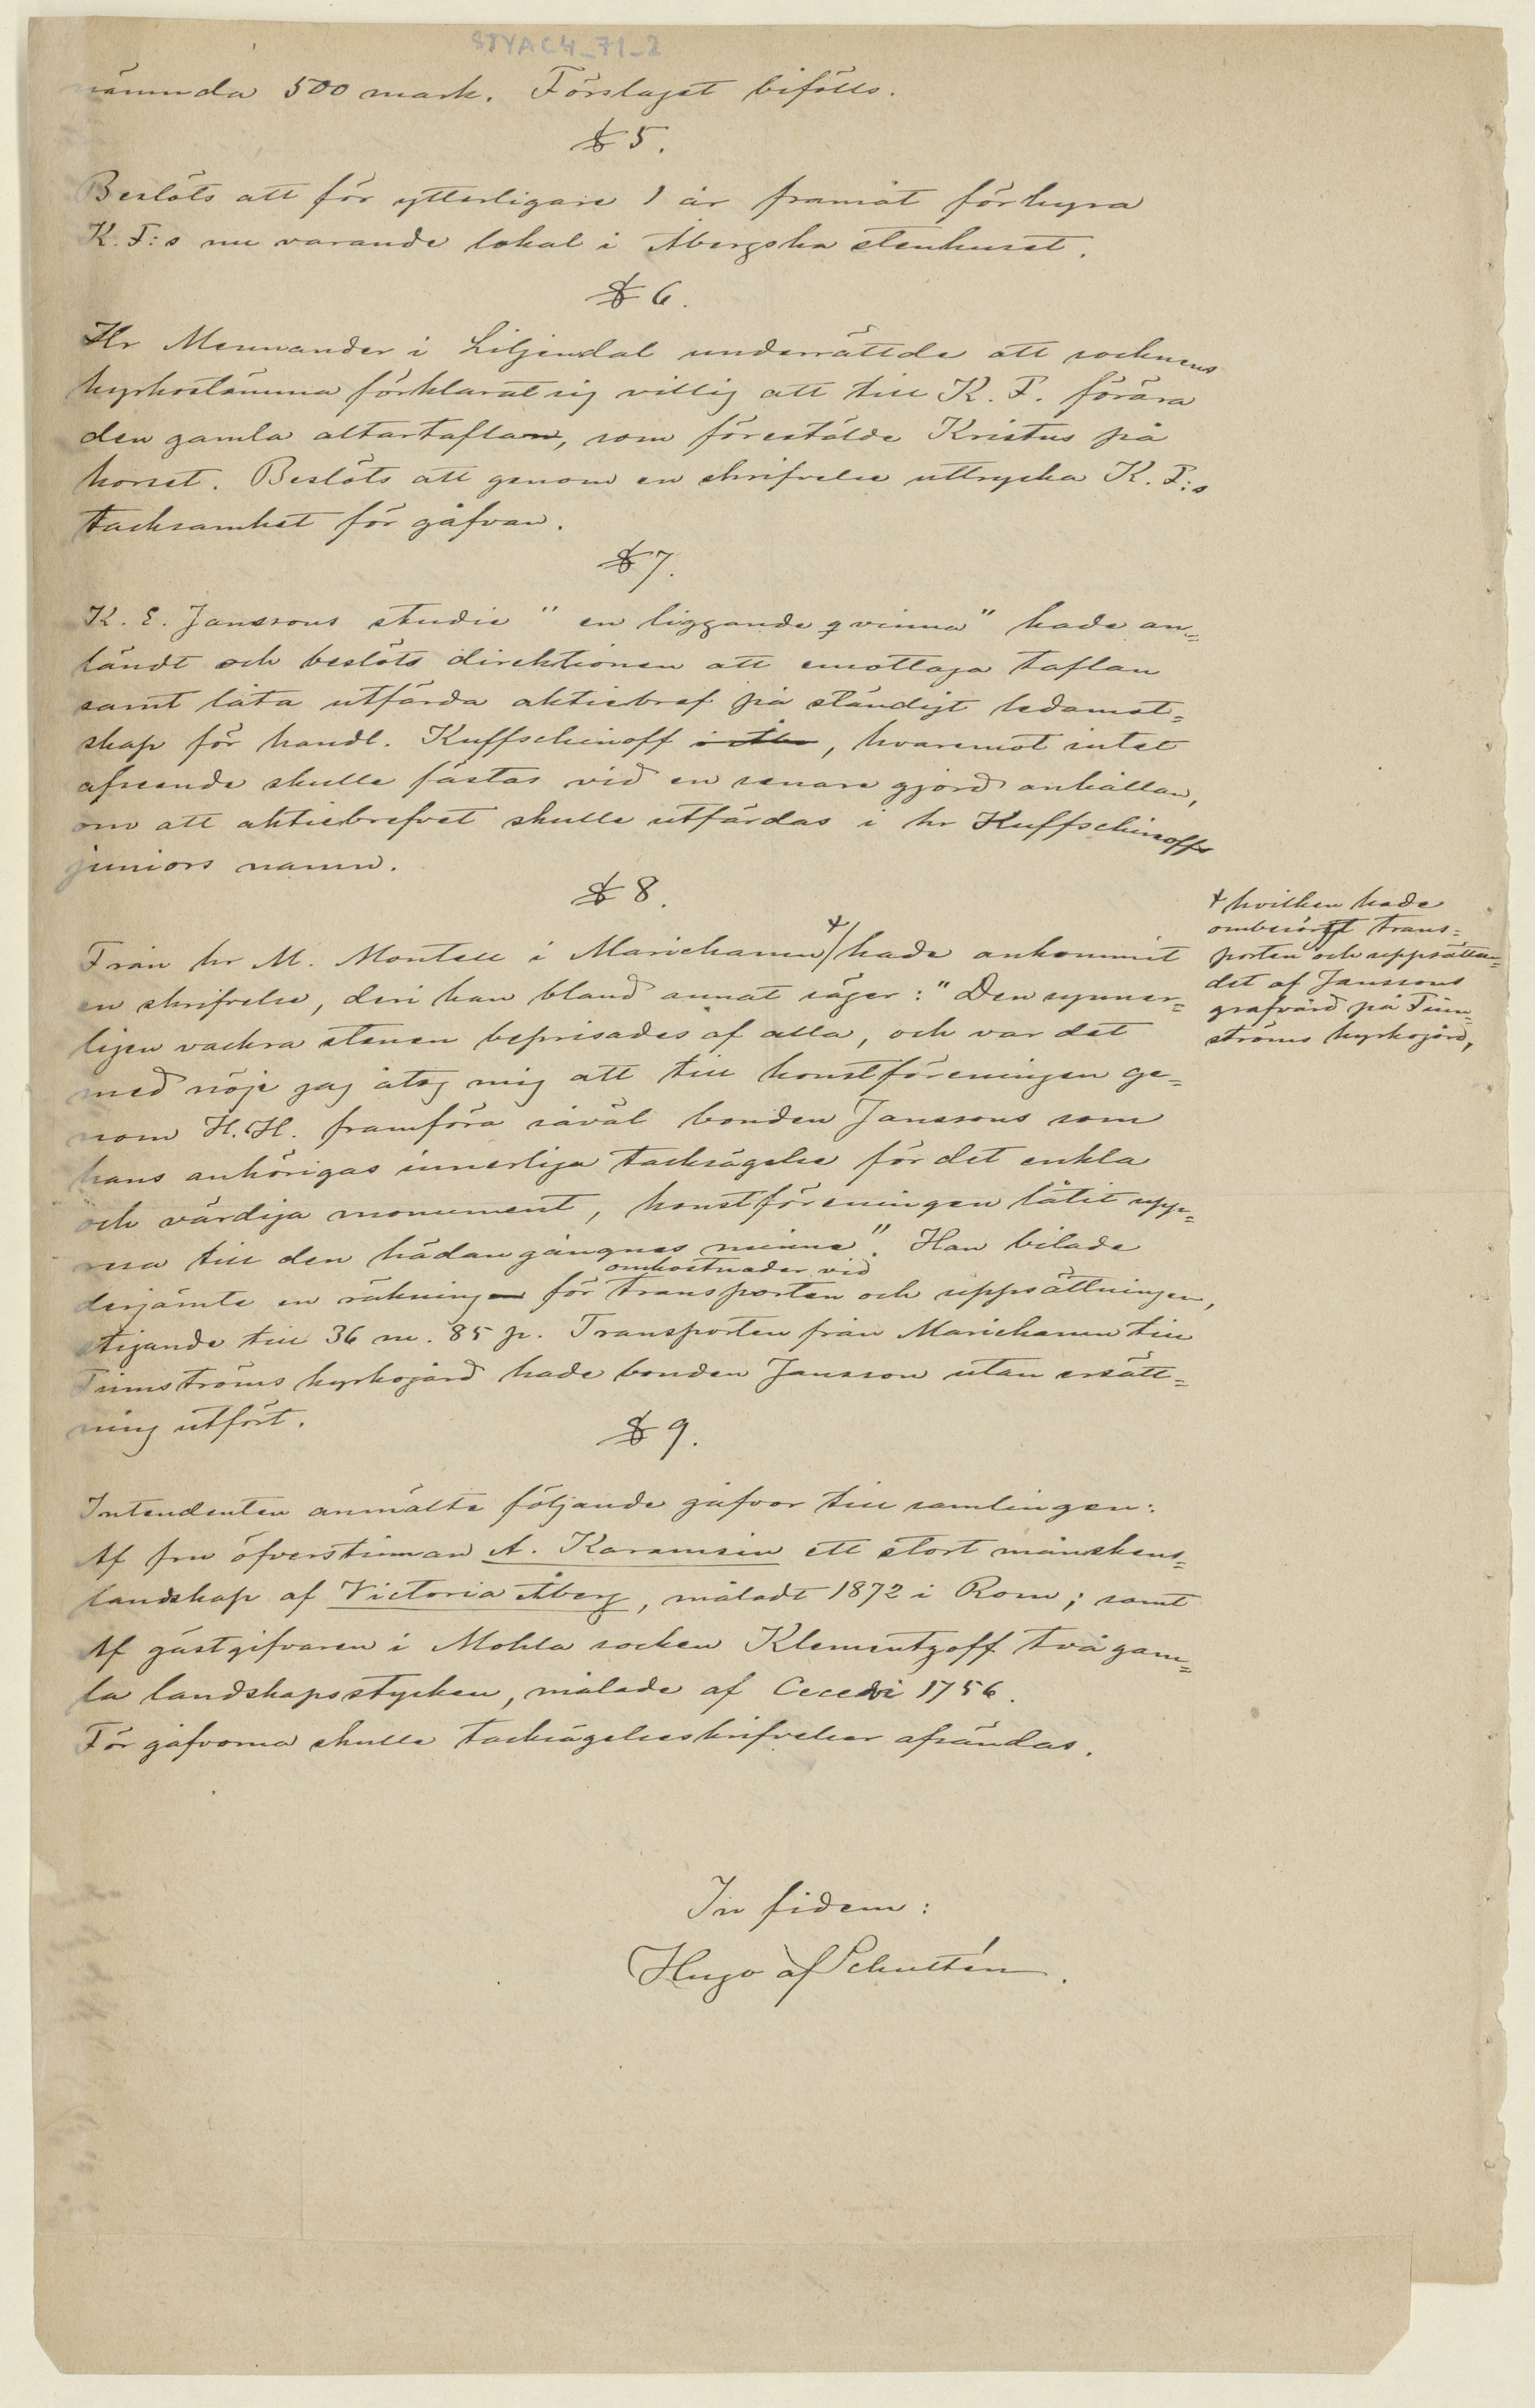 STYAC4_71_2
nämnda 500 mark. Förslaget bifölls.
§ 5.
Beslöts att för ytterligare 1 år framåt förhyra
K. F:s nu varande lokal i Åbergska stenhuset.
§ 6.
Hr Mennander i Liljendal underrättde att socknens
kyrkostämma förklarat sig villig att till K. F. förära
den gamla altartaflan, som förestälde Kristus på
korset. Beslöts att genom en skrifvelse uttrycka K. F:s
tacksamhet för gåfvan.
§ 7.
K. E. Janssons studie "en liggande qvinna" hade an=
ländt och beslöts direktionen att emottaga taflan
samt låta utfärda aktiebref på ständigt ledamot=
skap för handl. Kuffschinoff, hvaremot intet
afseende skulle fästas vid en senare gjord anhållan,
om att aktiebrefvet skulle utfärdas i hr Kuffschinoffs
juniors namn.
§ 8.
Från hr M. Montell i Mariehamn +/ hade ankommit
en skrifvelse, deri han bland annat säger: "Den synner=
ligen vackra stenen beprisades af alla, och var det
med nöje jag åtog mig att till konstföreningen ge=
nom H. H. framföra såväl bonden Janssons som
hans anhörigas innerliga tacksägelse för det enkla
och värdiga monument, konstföreningen låtit upp=
resa till den hädangångnes minne". Han bilade
omkostnader vid
derjämte en räkning för transporten och uppsättningen,
stigande till 36 m. 85 p. Transporten från Mariehamn till
Finnströms kyrkogård hade bonden Jansson utan ersätt=
ning utfört.
+ hvilken hade
ombesörjt trans=
porten och uppsättan=
det af Janssons
grafvård på Finn=
ströms kyrkogård,
§ 9.
Intendenten anmälte följande gåfvor till samlingen:
Af fru öfverstinnan A. Karamsin ett stort månskens=
landskap af Victoria Åberg, måladt 1872 i Rom; samt
Af gästgifvaren i Mohla socken Klementzoff två gam=
la landskapsstycken, målade af 1756.
För gåfvorna skulle tacksägelseskrifvelser afsändas.
In fidem:
Hugo af Schultén.